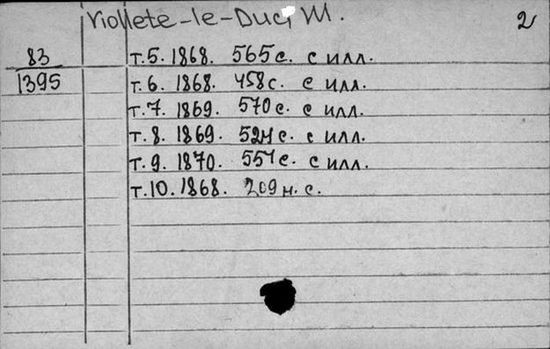 Viollete-le-Duc, M. 2
83 т.5. 1868. 565 с. с илл.
1395 т.6. 1868. 458 с. с илл.
т.7. 1869. 570 с. с илл.
т.8. 1869. 524 с. с илл.
т.9. 1870. 554 с. с илл.
т.10. 1868. 209 н. с.